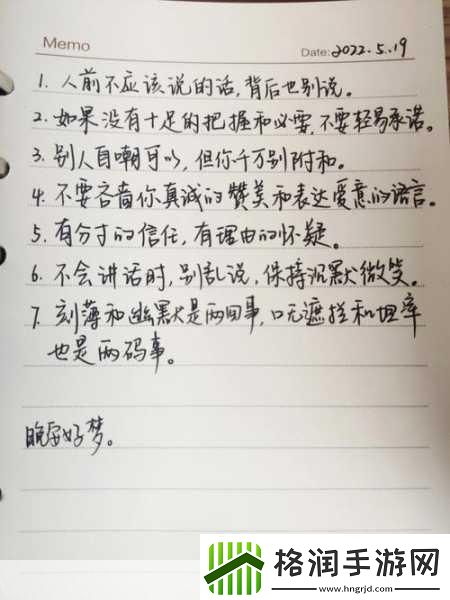 Memo
Date: 2022.5.19
1. 人前不应该说的话,背后也别说。
2. 如果没有十足的把握和必要,不要轻易承诺。
3. 别人自嘲可以,但你千万别附和。
4. 不要吝啬你真诚的赞美和表达爱意的语言。
5. 有分寸的信任,有理由的怀疑。
6. 不会讲话时,别乱说,保持沉默微笑。
7. 刻薄和幽默是两回事,口无遮拦和坦率
也是两码事。
晚安好梦。
格润手游网
www.hngrjd.com